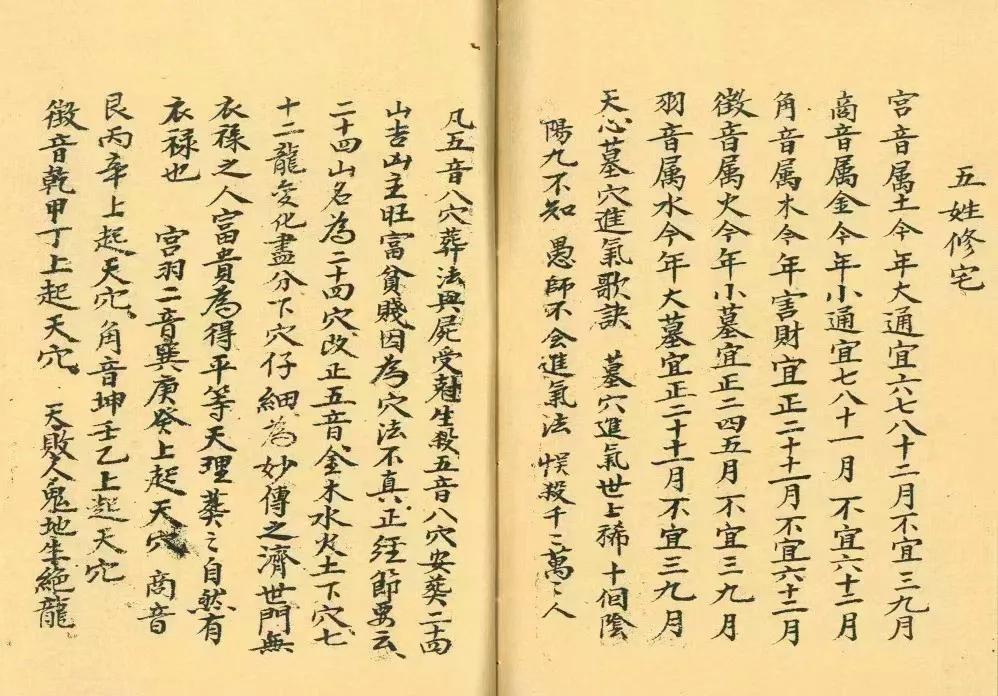 五姓修宅
宮音属土今年大通宜六七八十二月不宜三九月
商音属金今年小通宜七八十一月不宜六十二月
角音属木今年害財宜正二十十一月不宜六十二月
徵音属火今年小墓宜正二四五月不宜三九月
羽音属水今年大墓宜正二十十一月不宜三九月
天心墓穴進氣歌訣 墓穴進氣世上稀 十個陰
陽九不知 愚師不会進氣法 悮殺千〻萬〻人
凡五音八穴葬法與屍受尅生殺五音八穴安葬二十四
山吉凶主旺富貧賤因為穴法不真正經節要云
二十四山名為二十四穴改正五音金木水火土下穴七
十二龍变化盡分下穴仔細為妙傳之濟世門無
衣祿之人富貴為得平等天理葬之自然有
衣禄也 宮羽二音巽庚癸上起天穴 商音
艮丙辛上起天穴角音坤壬乙上起天穴
徵音乾甲丁上起天穴 天敗人鬼地生絶龍